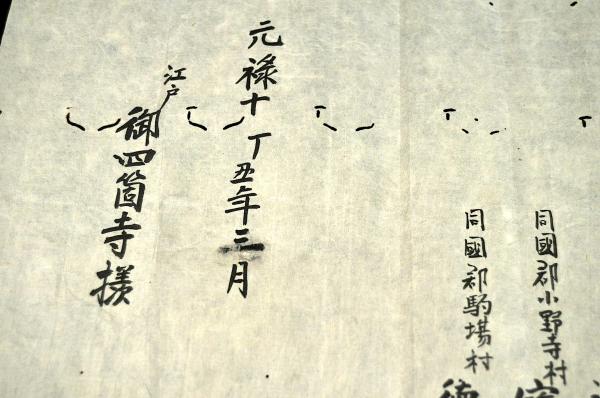 同國郡小野寺村
同國郡駒場村
元禄十丁丑年三月
江戸
御四箇寺様